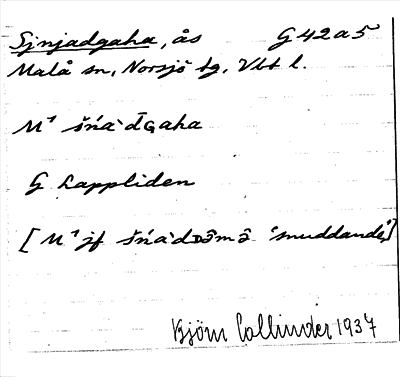 Sjnjadgaha, ås G 42 a 5
Malå sn, Norsjö tg, Vbt l.
M¹ šńa`dɢaha
G Lappliden
[M¹ jf šńa`dᴅəmə "snuddande"]
Björn Collinder 1937